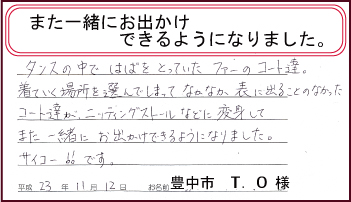 また一緒にお出かけ
できるようになりました。
タンスの中で はばをとっていた ファーのコート達。
着ていく場所を選んでしまって なかなか 表に出ることのなかった
コート達が、ニッティングストールなどに変身して
また一緒に お出かけできるようになりました。
サイコー です。
平成 23 年 11月 12日 お名前 豊中市 T．O 様